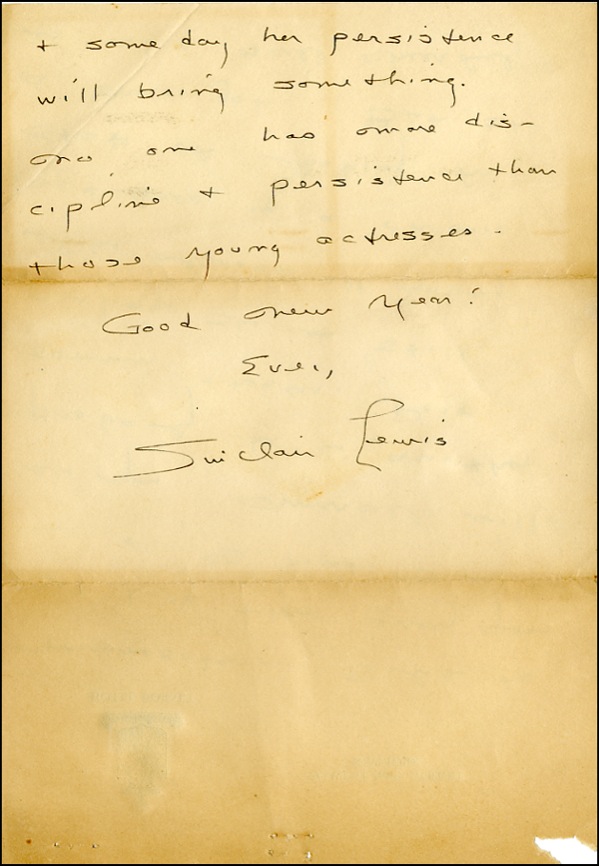 + some day her persistence
will bring something.
no one has more dis-
cipline + persistence than
those young actresses.
Good new year!
Ever,
Sinclair Lewis